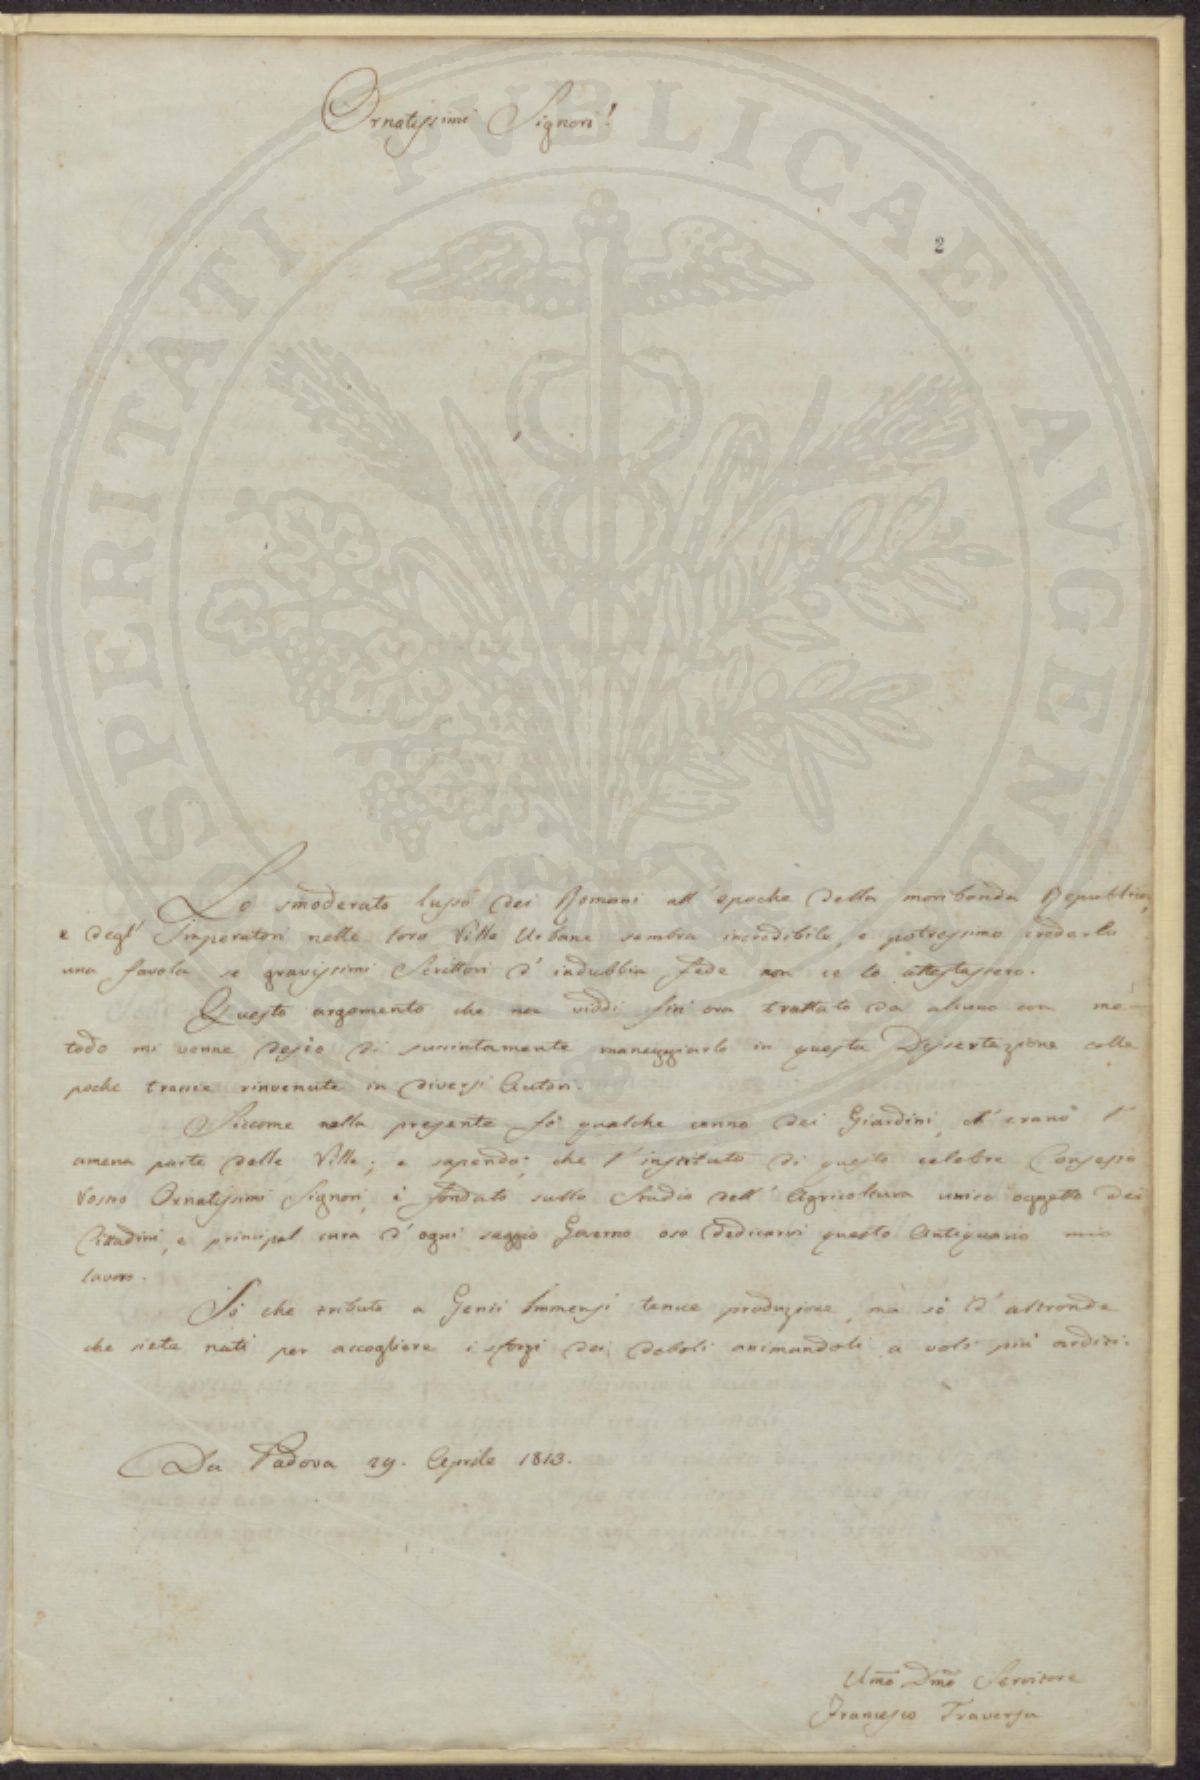 Ornatissimi Signori!
2
Lo smoderato lusso dei Romani all'epoche della moribonda Repubblica,
e degl'Imperatori nelle loro Ville Urbane sembra incredibile, e potressimo crederlo
una favola se gravissimi Scrittori d'indubbia fede non ce lo attestassero.
Questo argomento che non viddi fin ora trattato da alcuno con me-
todo mi venne desìo di succintamente maneggiarlo in questa Dissertazione colle
poche traccie rinvenute in diversi Autori.
Siccome nella presente fò qualche cenno dei Giardini, ch'erano l'
amena parte delle Ville; e sapendo, che l'instituto di questo celebre Consesso
Vostro Ornatissimi Signori, è fondato sullo Studio dell'Agricoltura unico oggetto dei
Cittadini, e principal cura d'ogni saggio Governo oso dedicarvi questo Antiquario mio
lavoro.
Sò che tributo a Genii Immensi tenue produzione, mà sò d'altronde
che siete nati per accogliere i sforzi dei deboli animandoli a voli più arditi.
Da Padova 29. Aprile 1813.
Umo Dmo Servitore
Francesco Traversa
PROSPERITATI PVBLICAE AVGENDAE